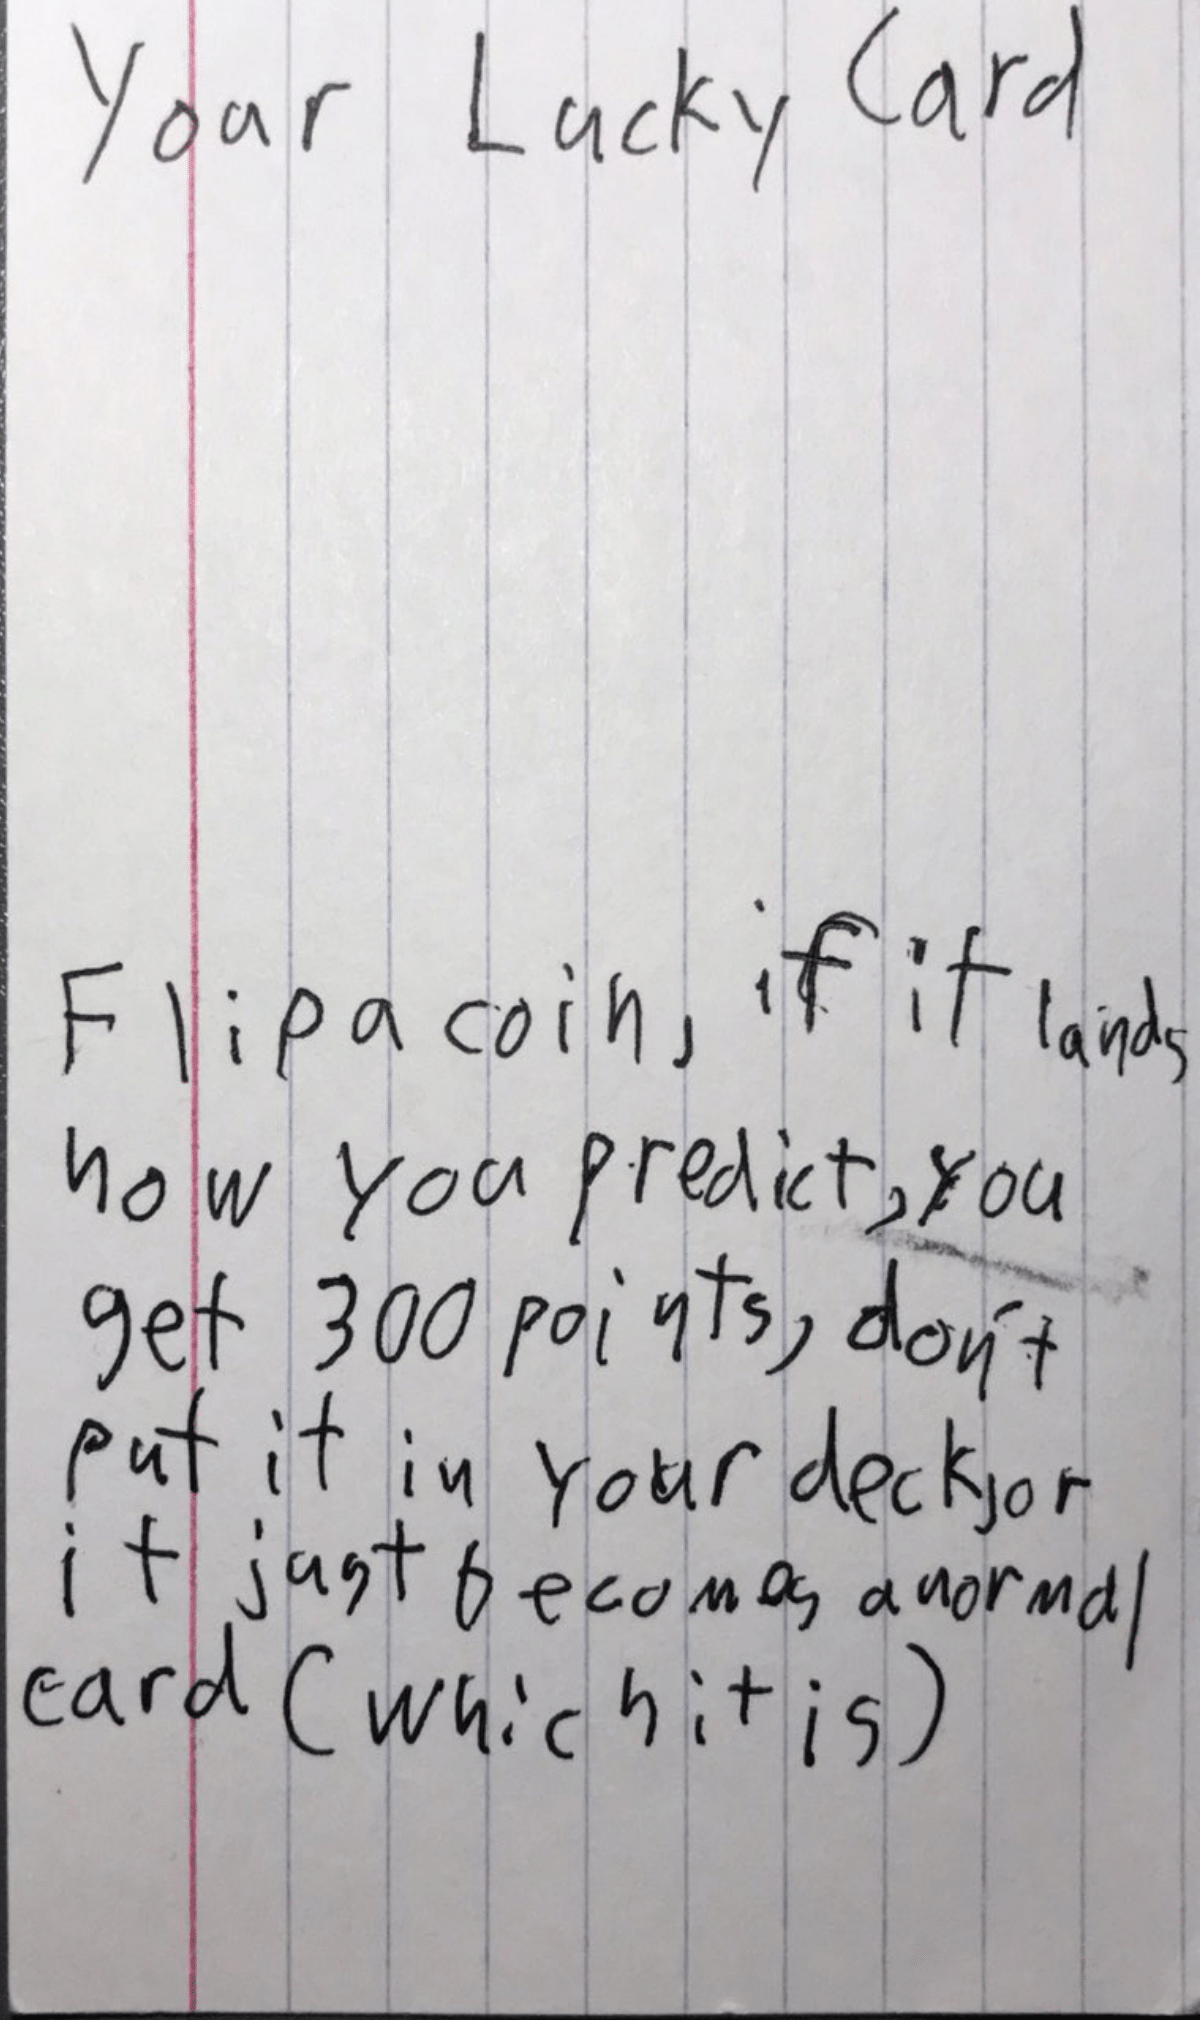 Your Lucky Card
Flip a coin, if it lands
how you predict, you
get 300 points, don't
put it in your deck, or
it just becomes a normal
card (which it is)